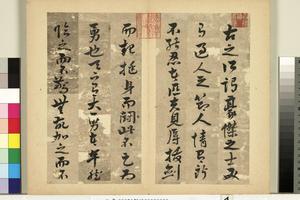 古之所謂豪傑之士必
有過人之節人情有所
不能忍者匹夫見辱拔劍
而起挺身而鬭此不足為
勇也天下有大勇者卒然
臨之而不驚無故加之而不